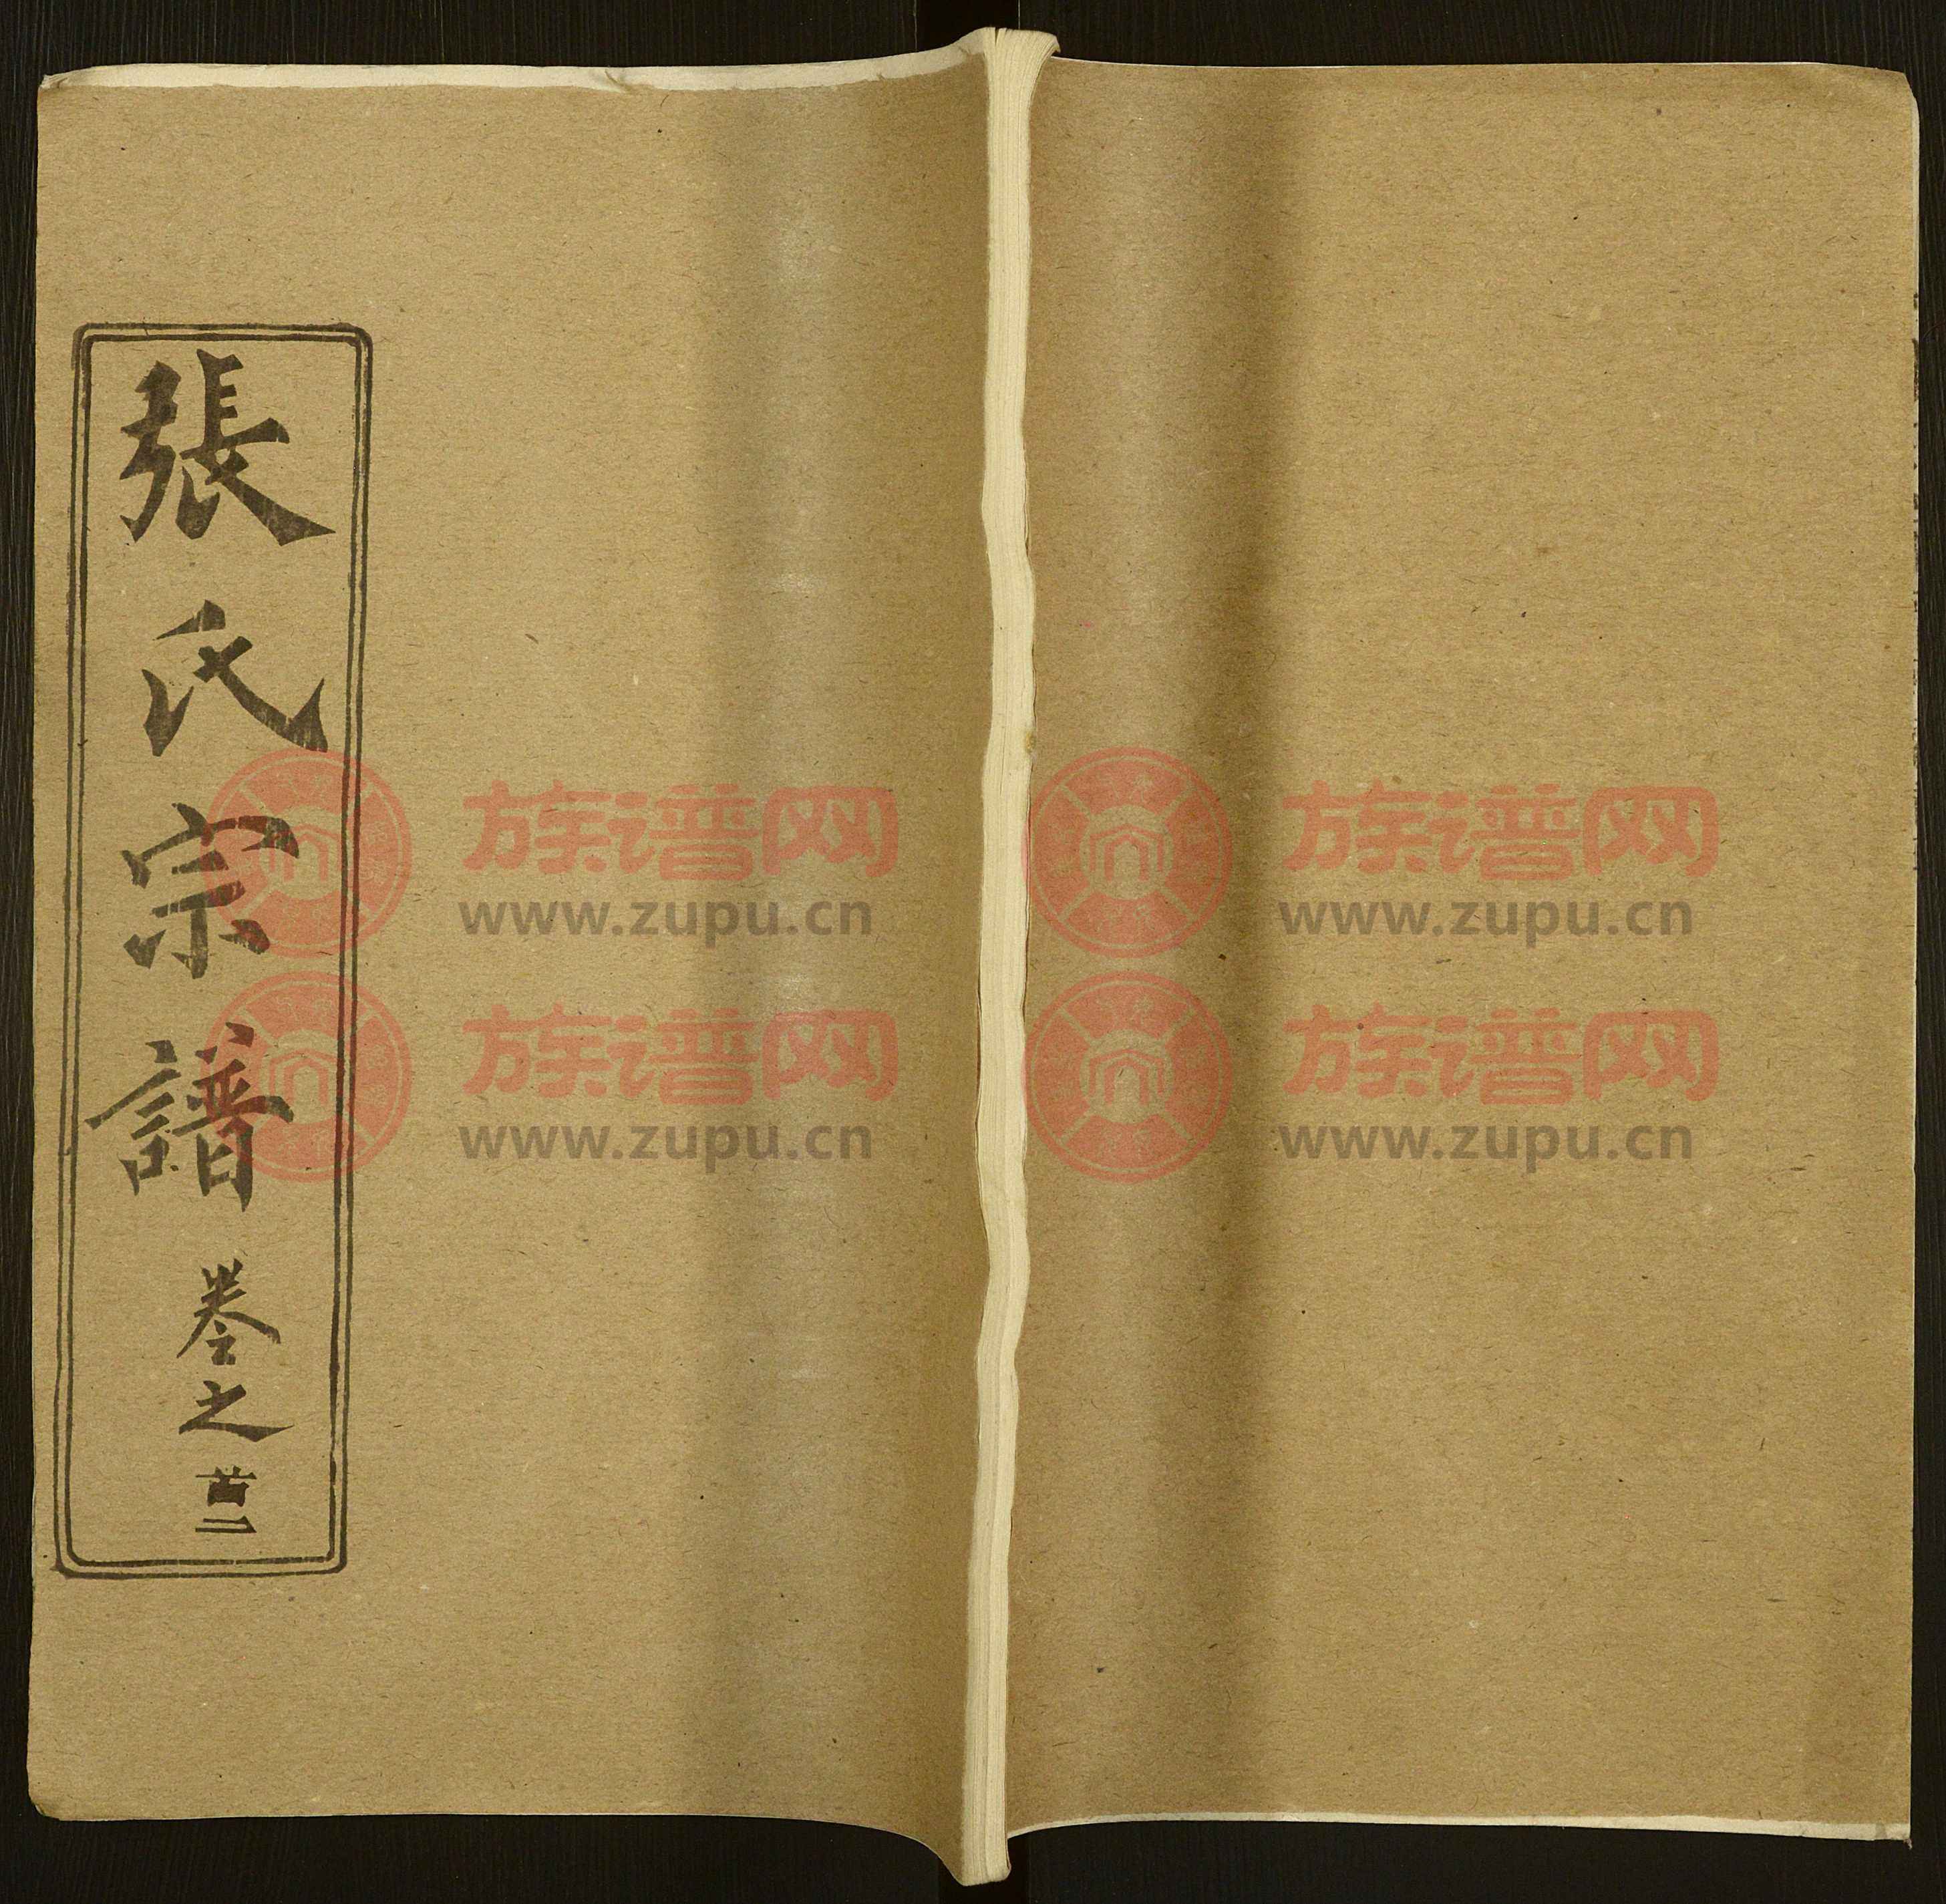 張氏宗譜 卷之廿二
族谱网
www.zupu.cn
族谱网
www.zupu.cn
族谱网
www.zupu.cn
族谱网
www.zupu.cn